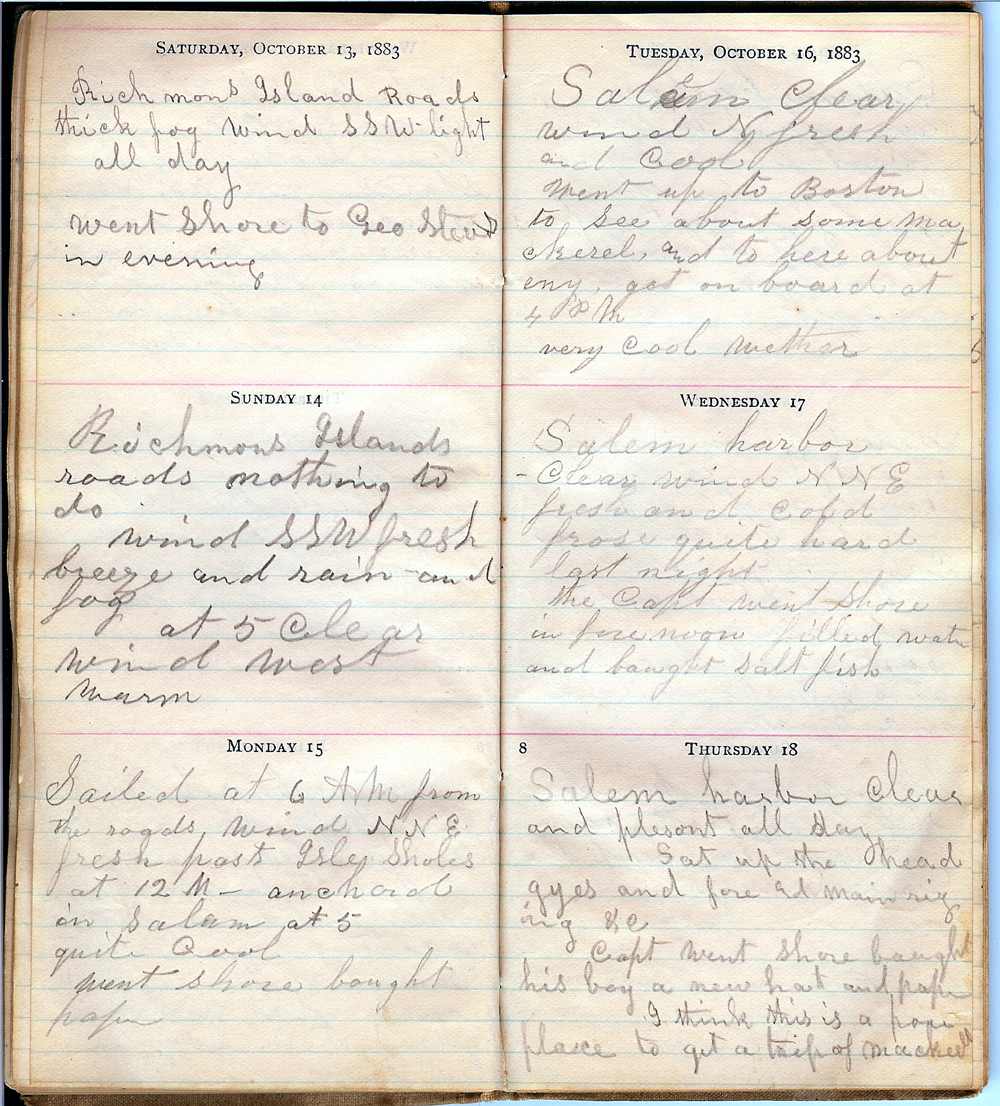 SATURDAY, OCTOBER 13, 1883
Richmons Island Roads
thick fog wind SSW light
all day
went shore to Geo
in evening
SUNDAY 14
Richmons Islands
roads nothing to
do
wind SSW fresh
breeze and rain and
fog
at 5 Clear
wind west
warm
MONDAY 15
Sailed at 6 AM from
the roads, wind N N E
fresh past Isle Sholes
at 12 M - anchord
in Salam at 5
quite Cool
went shore bought
paper
TUESDAY, OCTOBER 16, 1883
Salem Clear
wind N fresh
and Cool
went up to Boston
to see about some ma
ckerel, and to here about
eny. got on board at
4 PM
very Cool wether
WEDNESDAY 17
Salem harbor
- Clear wind N N E
fresh and Cold
frose quite hard
last night
the Capt went shore
in fore noon filled water
and baught salt fish
8 THURSDAY 18
Salem harbor Clear
and plesont all day
Sat up the head
gyes and fore and main rig
ing &c
Capt went shore baught
his boy a new hat and paper
I think this is a poor
place to get a trip of mackrell